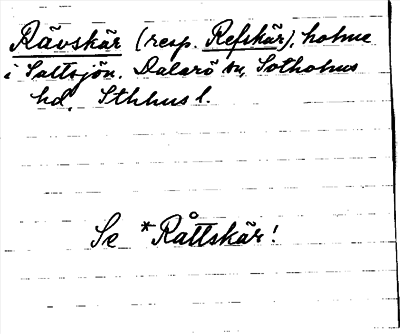 Rävskär (resp. Refskär), holme
i Saltsjön. Dalarö sn, Sotholms
hd, Sthlms l.
Se *Råttskär!